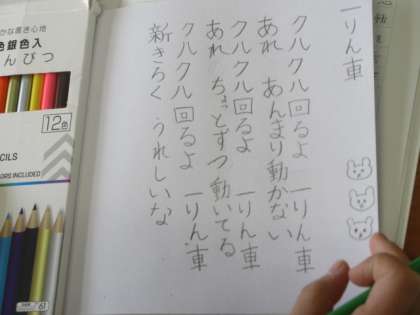 一りん車
クルクル回るよ 一りん車
あれ あんまり動かない
クルクル回るよ 一りん車
あれ ちょとずつ動いてる
クルクル回るよ 一りん車
新きろく うれしいな
かな書き心地
色銀色入
んぴつ
12色
CILS
ORS INCLUDED